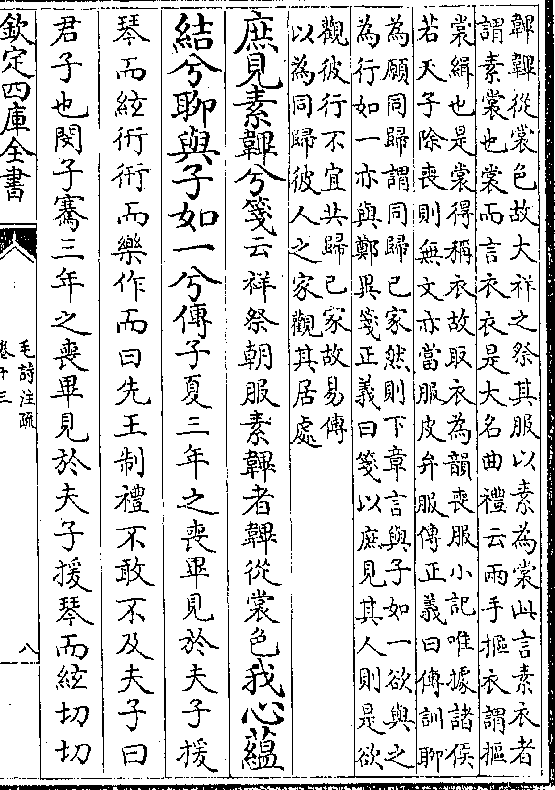 韠韠從裳色故大祥之祭其服以素為裳此言素衣者
謂素裳也裳而言衣衣是大名曲禮云兩手摳衣謂摳
裳緝也是裳得稱衣故取衣為韻喪服小記唯據諸侯
若天子除喪則無文亦當服皮弁服傳正義曰傳訓聊
為願同歸謂同歸己家然則下章言與子如一欲與之
為行如一亦與鄭異箋正義曰箋以庶見其人則是欲
觀彼行不宜共歸己家故易傳
以為同歸彼人之家觀其居處
庶見素韠兮箋云祥祭朝服素韠者韠從裳色我心蘊
結兮聊與子如一兮傳子夏三年之喪畢見於夫子援
琴而絃衎衎而樂作而曰先王制禮不敢不及夫子曰
君子也閔子騫三年之喪畢見於夫子援琴而絃切切
欽定四庫全書
毛詩注疏
卷十三
八